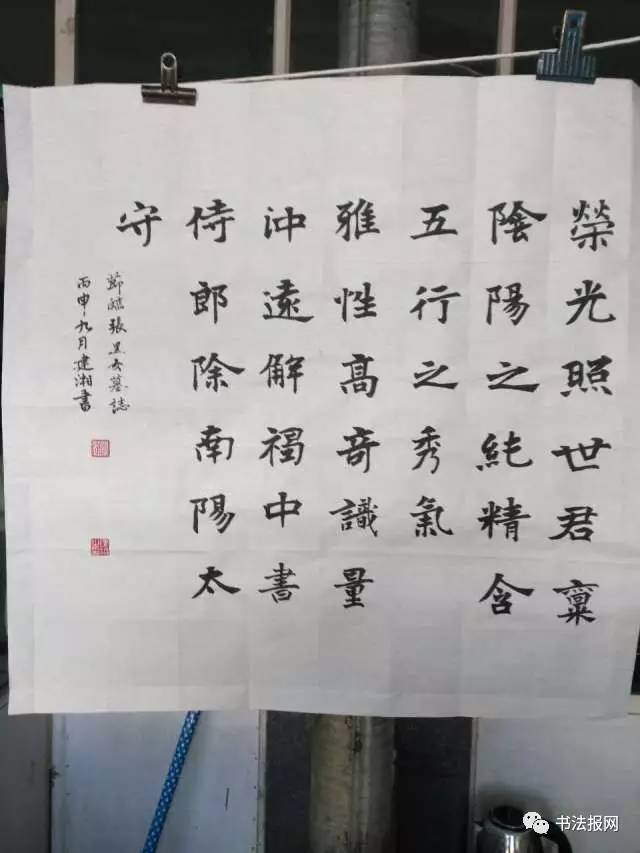 榮光照世君稟
陰陽之純精含
五行之秀氣
雅性高奇識量
沖遠解褐中書
侍郎除南陽太
守
節臨張黑女墓誌
丙申九月建湘書
书法报网